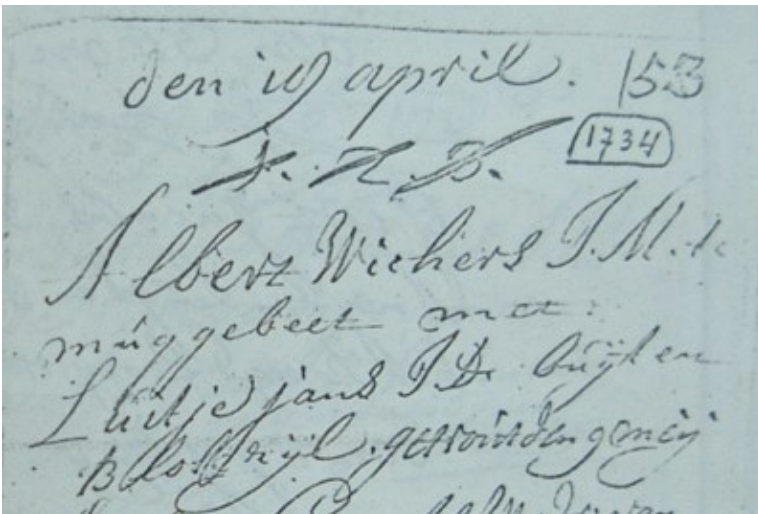 den 19 april. 153
1734
Albert Wichers J.M.
muggebeet met
Luitje jans J.D. buijten
Blokzijl. getrout den 9 meij